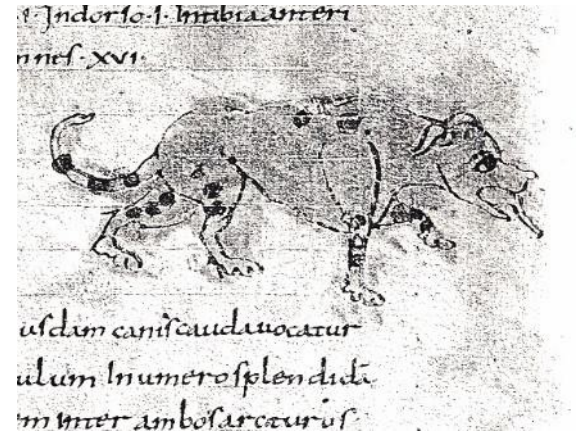 · Indorso · I · Intibia anteri
nnes · XVI ·
usdam caniscauda uocatur
ulum Innumero splendida
em Inter ambos arcturos